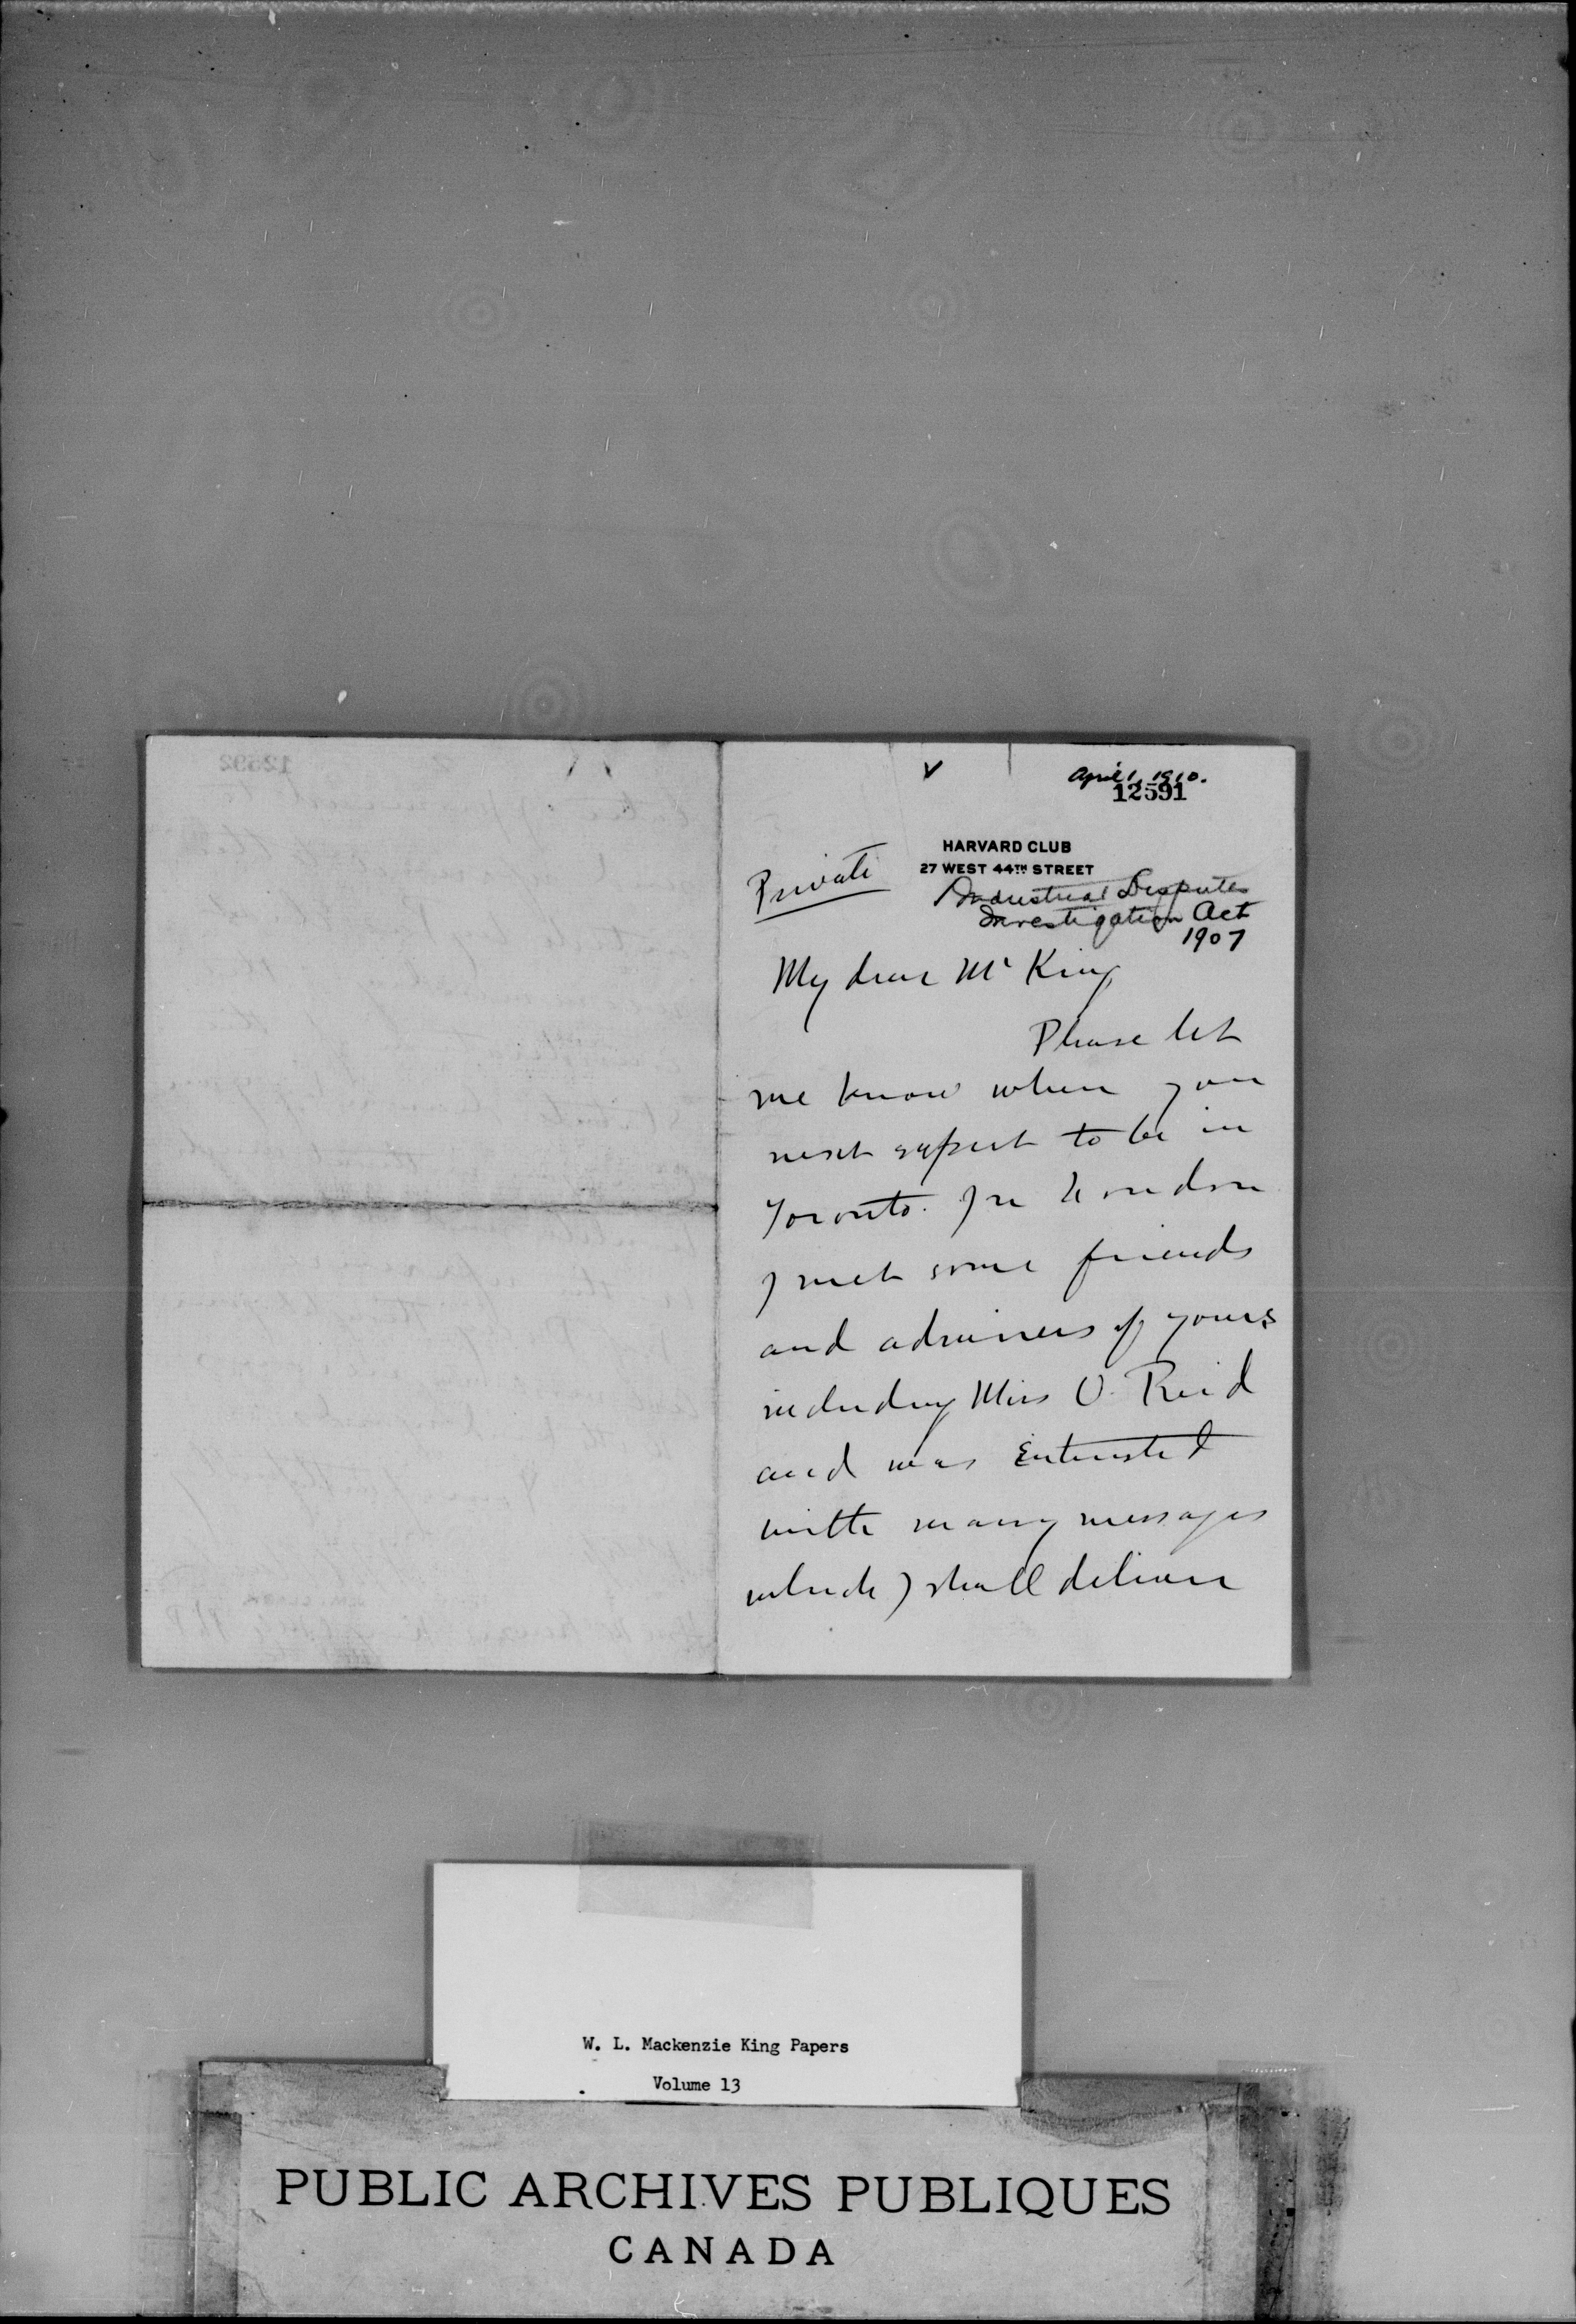 April 1, 1910.
12591
HARVARD CLUB
27 WEST 44TH STREET
Private
Industrial Disputes
Investigation Act
1907
My dear Mr King
Please let
me know when you
next expect to be in
Toronto. In London
I met some friends
and admirers of yours
including Miss O. Reid
and was entrusted
with many messages
which I shall deliver
W. L. Mackenzie King Papers
Volume 13
PUBLIC ARCHIVES PUBLIQUES
CANADA